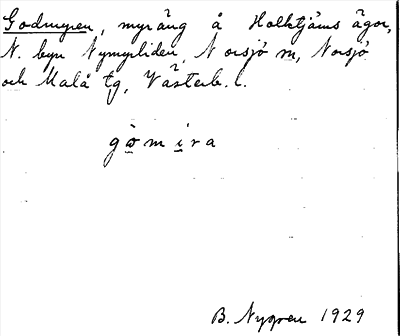 Godmyren, myräng å Holktjärns ägor,
N. byn Nymyrliden, Norsjö sn, Norsjö
och Malå tg, Västerb. l.
gömira
B. Nygren 1929